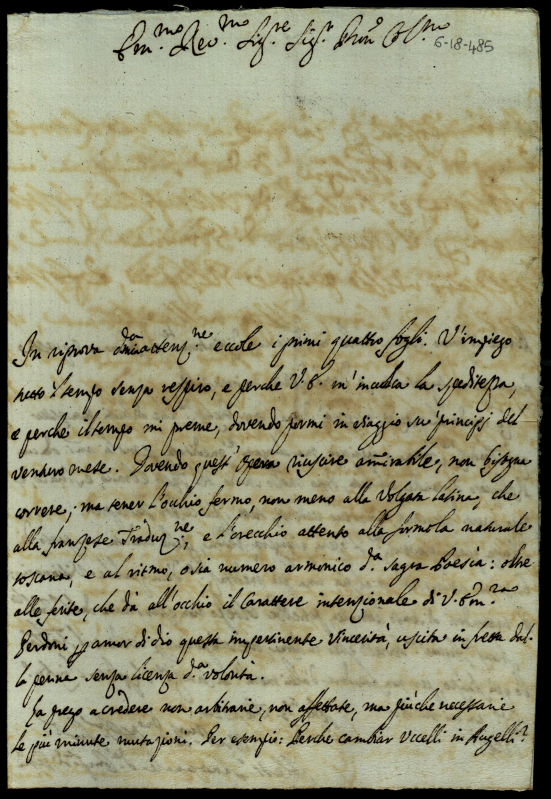 Em.mo Rev.mo Sig.re Sig.r Pron Col.mo
6-18-485
In riprova d.a mia attenz.ne eccole i primi quattro fogli. V'impiego
tutto il tempo senza respiro, e perche V.E. m'inculca la speditezza,
e perche il tempo mi preme, dovendo pormi in viaggio su' principj del
venturo mese. Dovendo quest'Opera riuscire am̃irabile, non bisogna
correre; ma tener l'occhio fermo, non meno alla Volgata latina, che
alla franzese Traduz.ne, e l'orecchio attento alla formola naturale
toscana, e al ritmo, o sia numero armonico d.a sagra Poesia: oltre
alle ferite, che dà all'occhio il Carattere intenzionale di V. Em.za
Perdoni per amor di dio questa impertinente sincerità, uscita in fretta dal-
la penna senza licenza d.a volontà.
La prego a credere non arbitrarie, non affettate, ma più che necessarie
le più minute mutazioni. Per esempio: Perche cambiar Uccelli in Augelli?